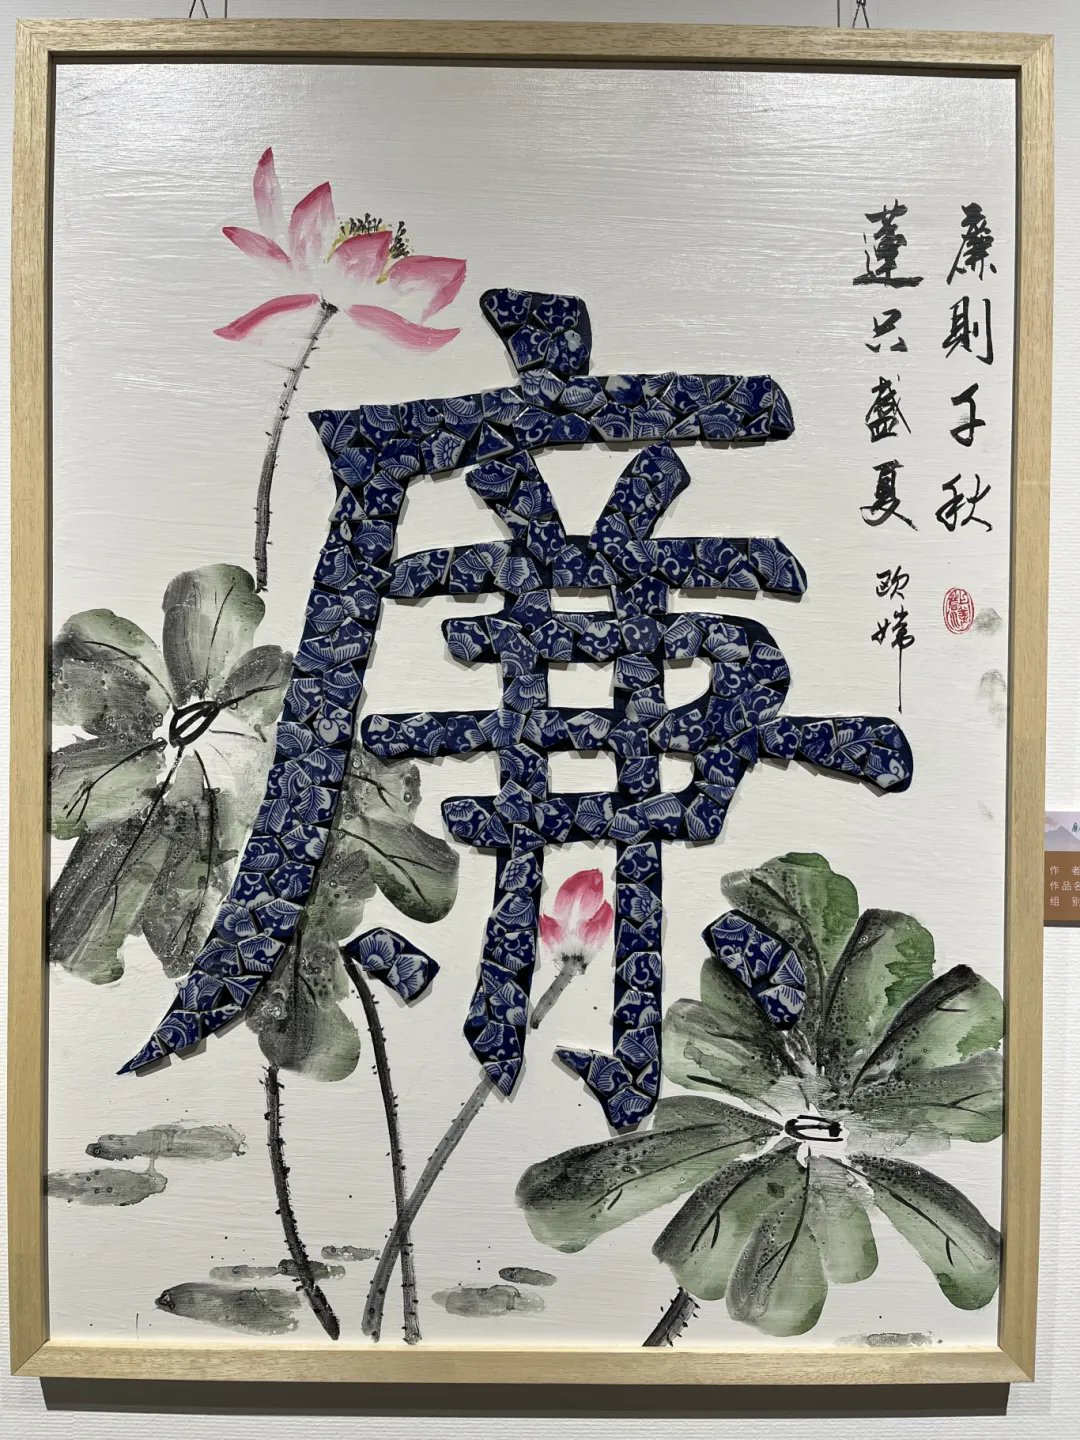 廉
廉則千秋
蓮只盛夏
欧嫦
作 者
作品名
组 别